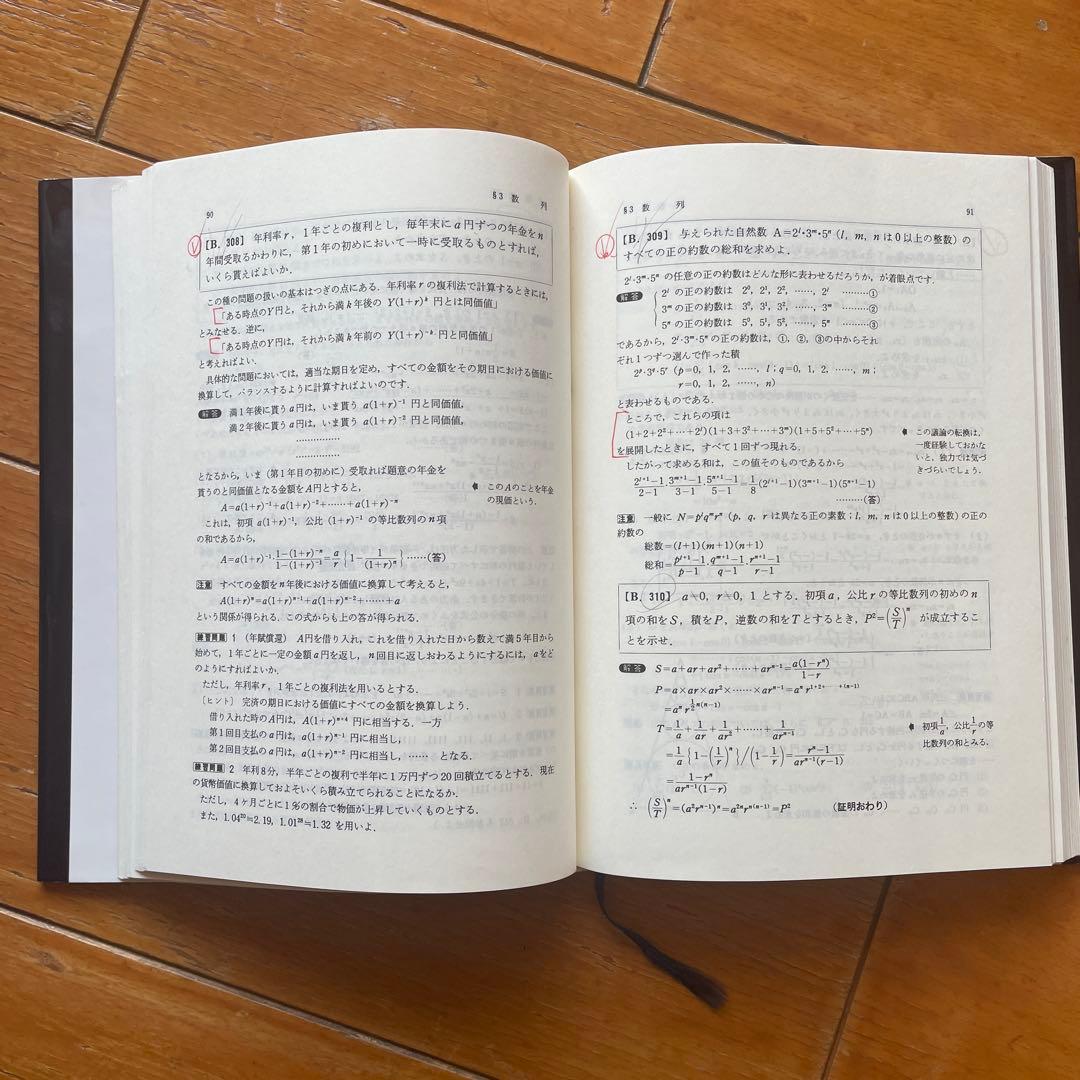 90
§3 数 列
[B. 308] 年利率r, 1年ごとの複利とし, 毎年末にa円ずつの年金をn
年間受取るかわりに, 第1年の初めにおいて一時に受取るものとすれば,
いくら貰えばよいか.
この種の問題の扱いの基本はつぎの点にある. 年利率rの複利法で計算するときには,
「ある時点のY円と, それから満k年後の Y(1+r)^k 円とは同価値」
とみなせる. 逆に,
「ある時点のY円は, それから満k年前の Y(1+r)^{-k} 円と同価値」
と考えればよい.
具体的な問題においては, 適当な期日を定め, すべての金額をその期日における価値に
換算して, バランスするように計算すればよいのです.
解答 満1年後に貰うa円は, いま貰う a(1+r)^{-1} 円と同価値,
満2年後に貰うa円は, いま貰う a(1+r)^{-2} 円と同価値,
……………
……………
となるから, いま (第1年目の初めに) 受取れば題意の年金を
貰うのと同価値となる金額をA円とすると,
このAのことを年金
の現価という.
A=a(1+r)^{-1}+a(1+r)^{-2}+……+a(1+r)^{-n}
これは, 初項 a(1+r)^{-1}, 公比 (1+r)^{-1} の等比数列のn項
の和であるから,
A=a(1+r)^{-1}・\frac{1-(1+r)^{-n}}{1-(1+r)^{-1}}=\frac{a}{r}{1-\frac{1}{(1+r)^n}} ……(答)
注意 すべての金額をn年後における価値に換算して考えると,
A(1+r)^n=a(1+r)^{n-1}+a(1+r)^{n-2}+……+a
という関係が得られる. この式からも上の答が得られる.
練習問題 1 (年賦償還) A円を借り入れ, これを借り入れた日から数えて満5年目から
始めて, 1年ごとに一定の金額a円を返し, n回目に返しおわるようにするには, aをど
のようにすればよいか.
ただし, 年利率r, 1年ごとの複利法を用いるとする.
[ヒント] 完済の期日における価値にすべての金額を換算しよう.
借り入れた時のA円は, A(1+r)^{n+4} 円に相当する. 一方
第1回目支払のa円は, a(1+r)^{n-1} 円に相当し,
第2回目支払のa円は, a(1+r)^{n-2} 円に相当し, …… となる.
練習問題 2 年利8分, 半年ごとの複利で半年に1万円ずつ20回積立てるとする. 現在
の貨幣価値に換算しておよそいくら積み立てられることになるか.
ただし, 4ケ月ごとに1%の割合で物価が上昇していくものとする.
また, 1.04^{20}≒2.19, 1.01^{28}≒1.32 を用いよ.
§3 数 列
91
[B. 309] 与えられた自然数 A=2^l・3^m・5^n (l, m, nは0以上の整数) の
すべての正の約数の総和を求めよ.
2^l・3^m・5^n の任意の正の約数はどんな形に表わせるだろうか, が着眼点です.
解答 2^l の正の約数は 2^0, 2^1, 2^2, ……, 2^l ………①
3^m の正の約数は 3^0, 3^1, 3^2, ……, 3^m ………②
5^n の正の約数は 5^0, 5^1, 5^2, ……, 5^n ………③
であるから, 2^l・3^m・5^n の正の約数は, ①, ②, ③の中からそれ
ぞれ1つずつ選んで作った積
2^p・3^q・5^r (p=0, 1, 2, ……, l; q=0, 1, 2, ……, m;
r=0, 1, 2, ……, n)
と表わせるものである.
ところで, これらの項は
(1+2+2^2+…+2^l)(1+3+3^2+…+3^m)(1+5+5^2+…+5^n)
を展開したときに, すべて1回ずつ現れる.
この議論の転換は,
一度経験しておかな
いと, 独力では気づ
きづらいでしょう.
したがって求める和は, この値そのものであるから
\frac{2^{l+1}-1}{2-1}・\frac{3^{m+1}-1}{3-1}・\frac{5^{n+1}-1}{5-1}=\frac{1}{8}(2^{l+1}-1)(3^{m+1}-1)(5^{n+1}-1)
………(答)
注意 一般に N=p^l q^m r^n (p, q, rは異なる正の素数; l, m, nは0以上の整数) の正の
約数の
総数=(l+1)(m+1)(n+1)
総和=\frac{p^{l+1}-1}{p-1}・\frac{q^{m+1}-1}{q-1}・\frac{r^{n+1}-1}{r-1}
[B. 310] a≠0, r≠0, 1 とする. 初項a, 公比rの等比数列の初めのn
項の和をS, 積をP, 逆数の和をTとするとき, P^2=(\frac{S}{T})^n が成立するこ
とを示せ.
解答 S=a+ar+ar^2+……+ar^{n-1}=\frac{a(1-r^n)}{1-r}
P=a×ar×ar^2×……×ar^{n-1}=a^n r^{1+2+……+(n-1)}
=a^n r^{\frac{1}{2}n(n-1)}
T=\frac{1}{a}+\frac{1}{ar}+\frac{1}{ar^2}+……+\frac{1}{ar^{n-1}}
初項\frac{1}{a}, 公比\frac{1}{r}の等
比数列の和とみる.
=\frac{1}{a}{1-(\frac{1}{r})^n}/(1-\frac{1}{r})=\frac{r^n-1}{ar^{n-1}(r-1)}
=\frac{1-r^n}{ar^{n-1}(1-r)}
∴ (\frac{S}{T})^n=(a^2r^{n-1})^n=a^{2n}r^{n(n-1)}=P^2 (証明おわり)